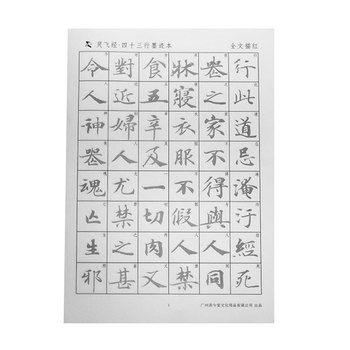 灵飞经·四十三行墨迹本
全文描红
行此道忌淹汙經死
喪之家不得與人同
牀寢衣服不假人禁
食五辛及一切肉又
對近婦人尤禁之甚
令人神喪魂亡生邪
1
文化用品有限公司 出品